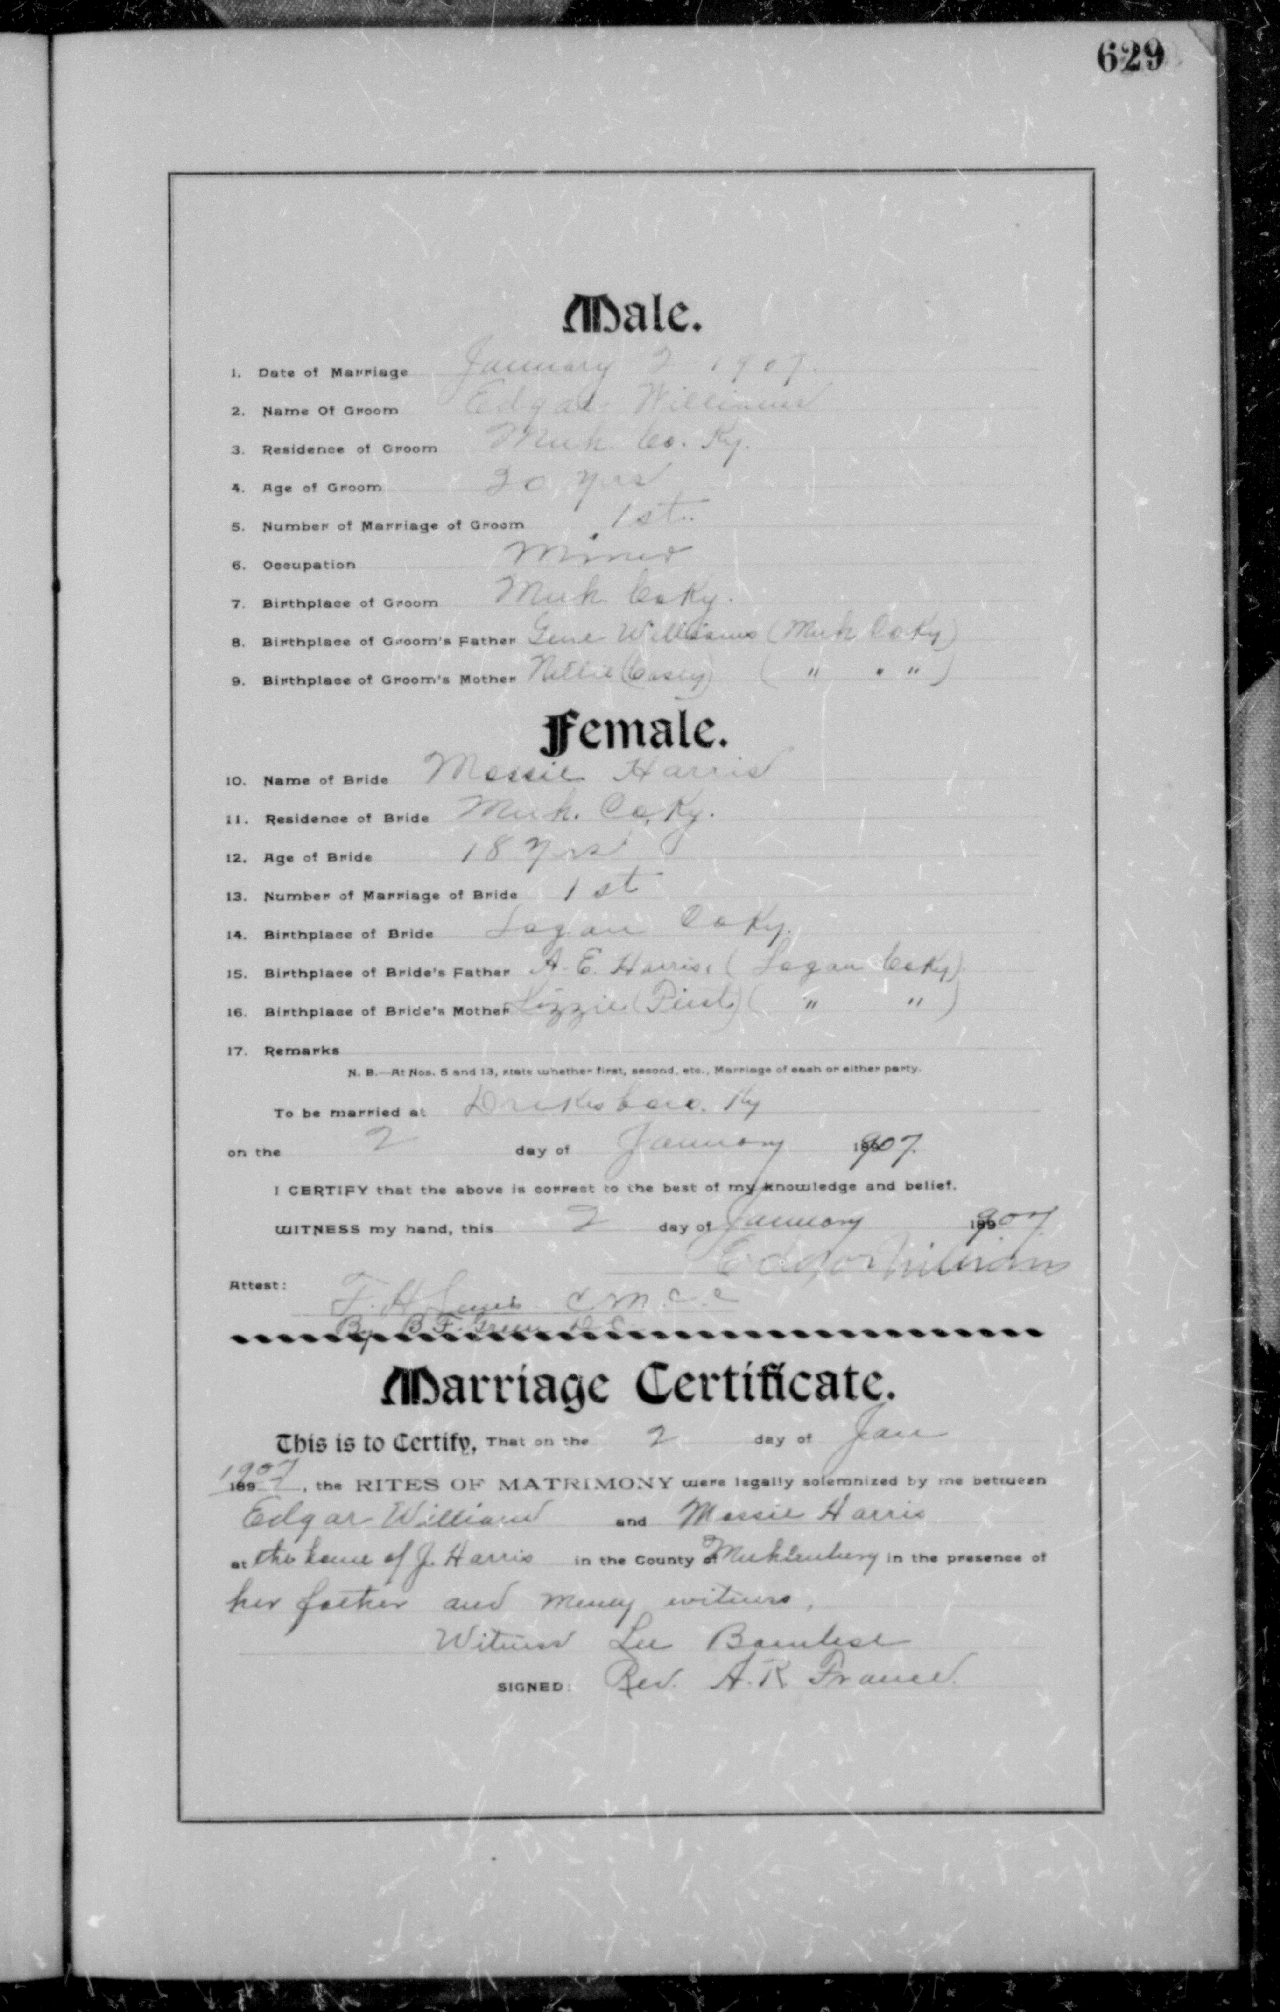 629
Male.
1. Date of Marriage January 2 1907.
2. Name Of Groom Edgar Williams
3. Residence of Groom Muh. Co. Ky.
4. Age of Groom 20 yrs
5. Number of Marriage of Groom 1st.
6. Occupation Miner
7. Birthplace of Groom Muh. Co Ky.
8. Birthplace of Groom's Father Gene Williams (Muh Co Ky)
9. Birthplace of Groom's Mother Nellie (Casey) ( " " " )
Female.
10. Name of Bride Mossie Harris
11. Residence of Bride Muh. Co, Ky.
12. Age of Bride 18 yrs
13. Number of Marriage of Bride 1st
14. Birthplace of Bride Logan Co Ky.
15. Birthplace of Bride's Father A. E. Harris, (Logan Co Ky)
16. Birthplace of Bride's Mother Lizzie ( " " )
17. Remarks
N. B.—At Nos. 5 and 13, state whether first, second, etc., Marriage of each or either party.
To be married at Drakesboro, Ky
on the 2 day of January 1907.
I CERTIFY that the above is correct to the best of my knowledge and belief.
WITNESS my hand, this 2 day of January 1907
Edgar Williams
Attest:
T. H. Lewis C M. C. C
By B. F. Green D C
Marriage Certificate.
This is to Certify, That on the 2 day of Jan
1907, the RITES OF MATRIMONY were legally solemnized by me between
Edgar William and Mossie Harris
at the home of J. Harris in the County of Muhlenburg in the presence of
her father and meny witness,
Witness Lee
SIGNED: Rev. A. R. France.